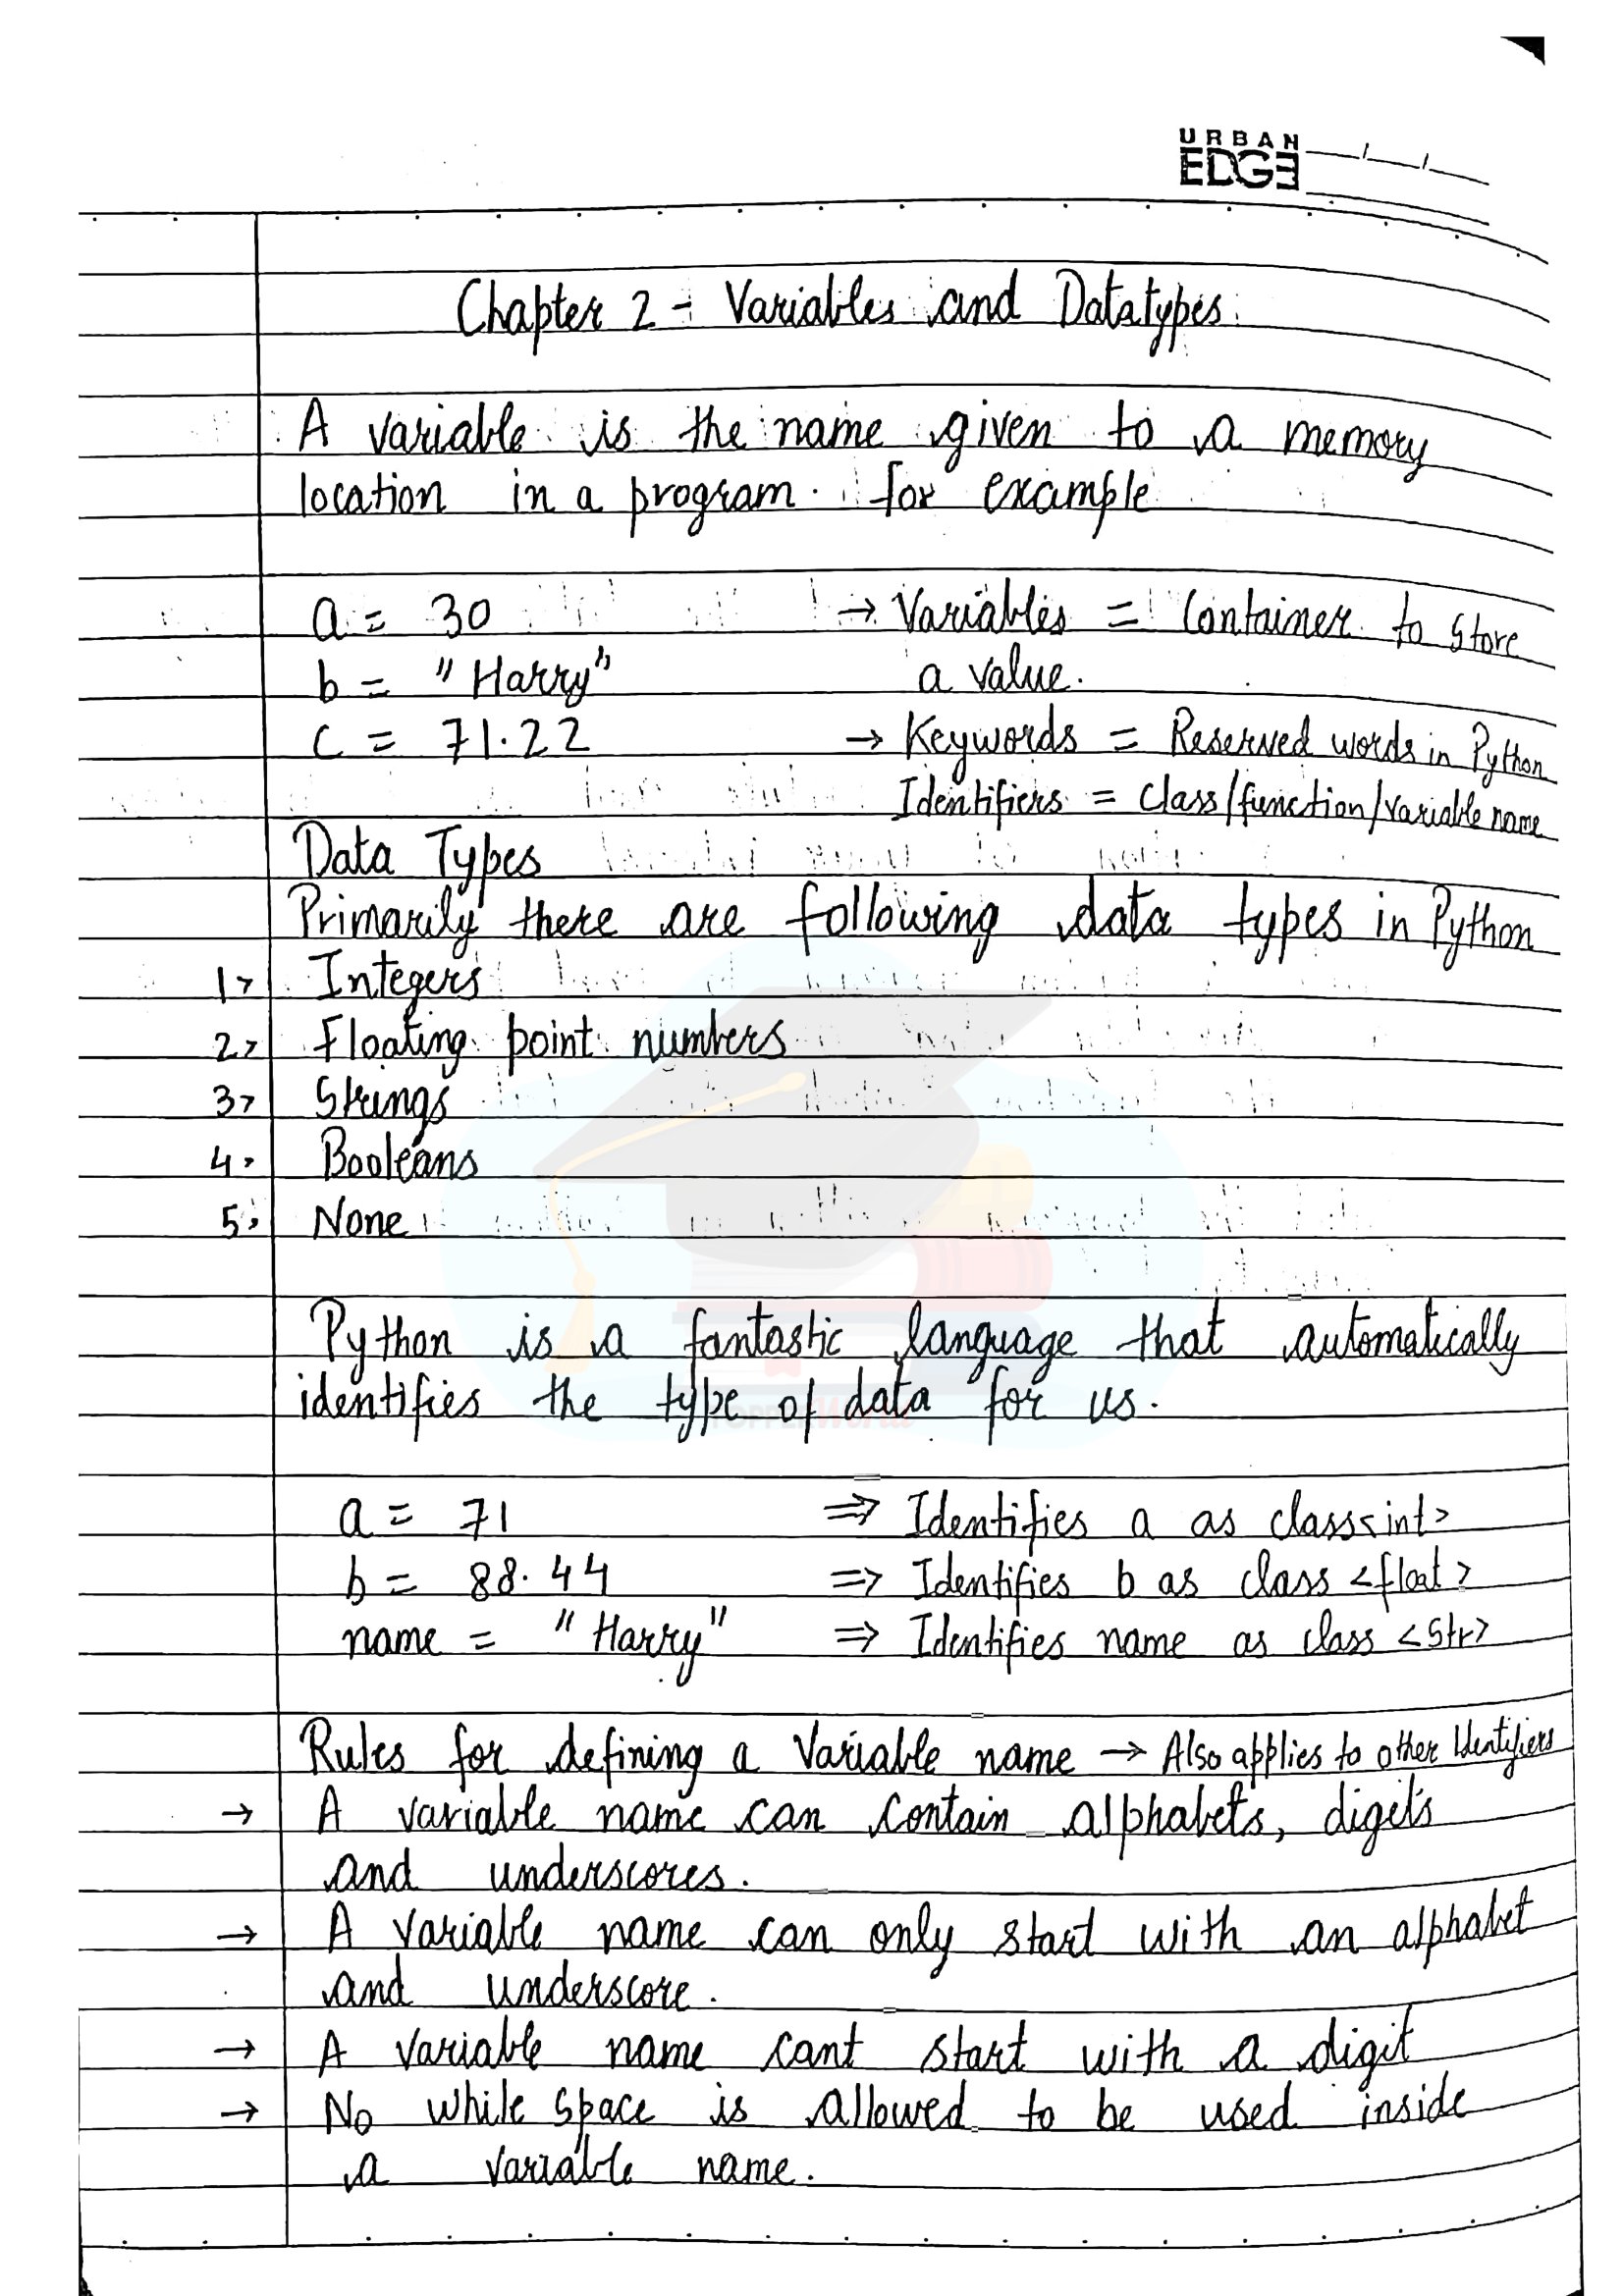 URBAN
EDGE
Chapter 2 - Variables and Datatypes
A variable is the name given to a memory
location in a program. for example
a = 30 → Variables = Container to store
b = "Harry" a value.
c = 71.22 → Keywords = Reserved words in Python
Identifiers = class/function/variable name
Data Types
Primarily there are following data types in Python
1> Integers
2> Floating point numbers
3> Strings
4> Booleans
5> None
Python is a fantastic language that automatically
identifies the type of data for us.
TOPPERWorld
a = 71 ⇒ Identifies a as class<int>
b = 88.44 ⇒ Identifies b as class <float>
name = "Harry" ⇒ Identifies name as class <str>
Rules for defining a Variable name → Also applies to other Identifiers
→ A variable name can contain alphabets, digits
and underscores.
→ A variable name can only start with an alphabet
and underscore.
→ A variable name cant start with a digit
→ No while space is allowed to be used inside
a variable name.